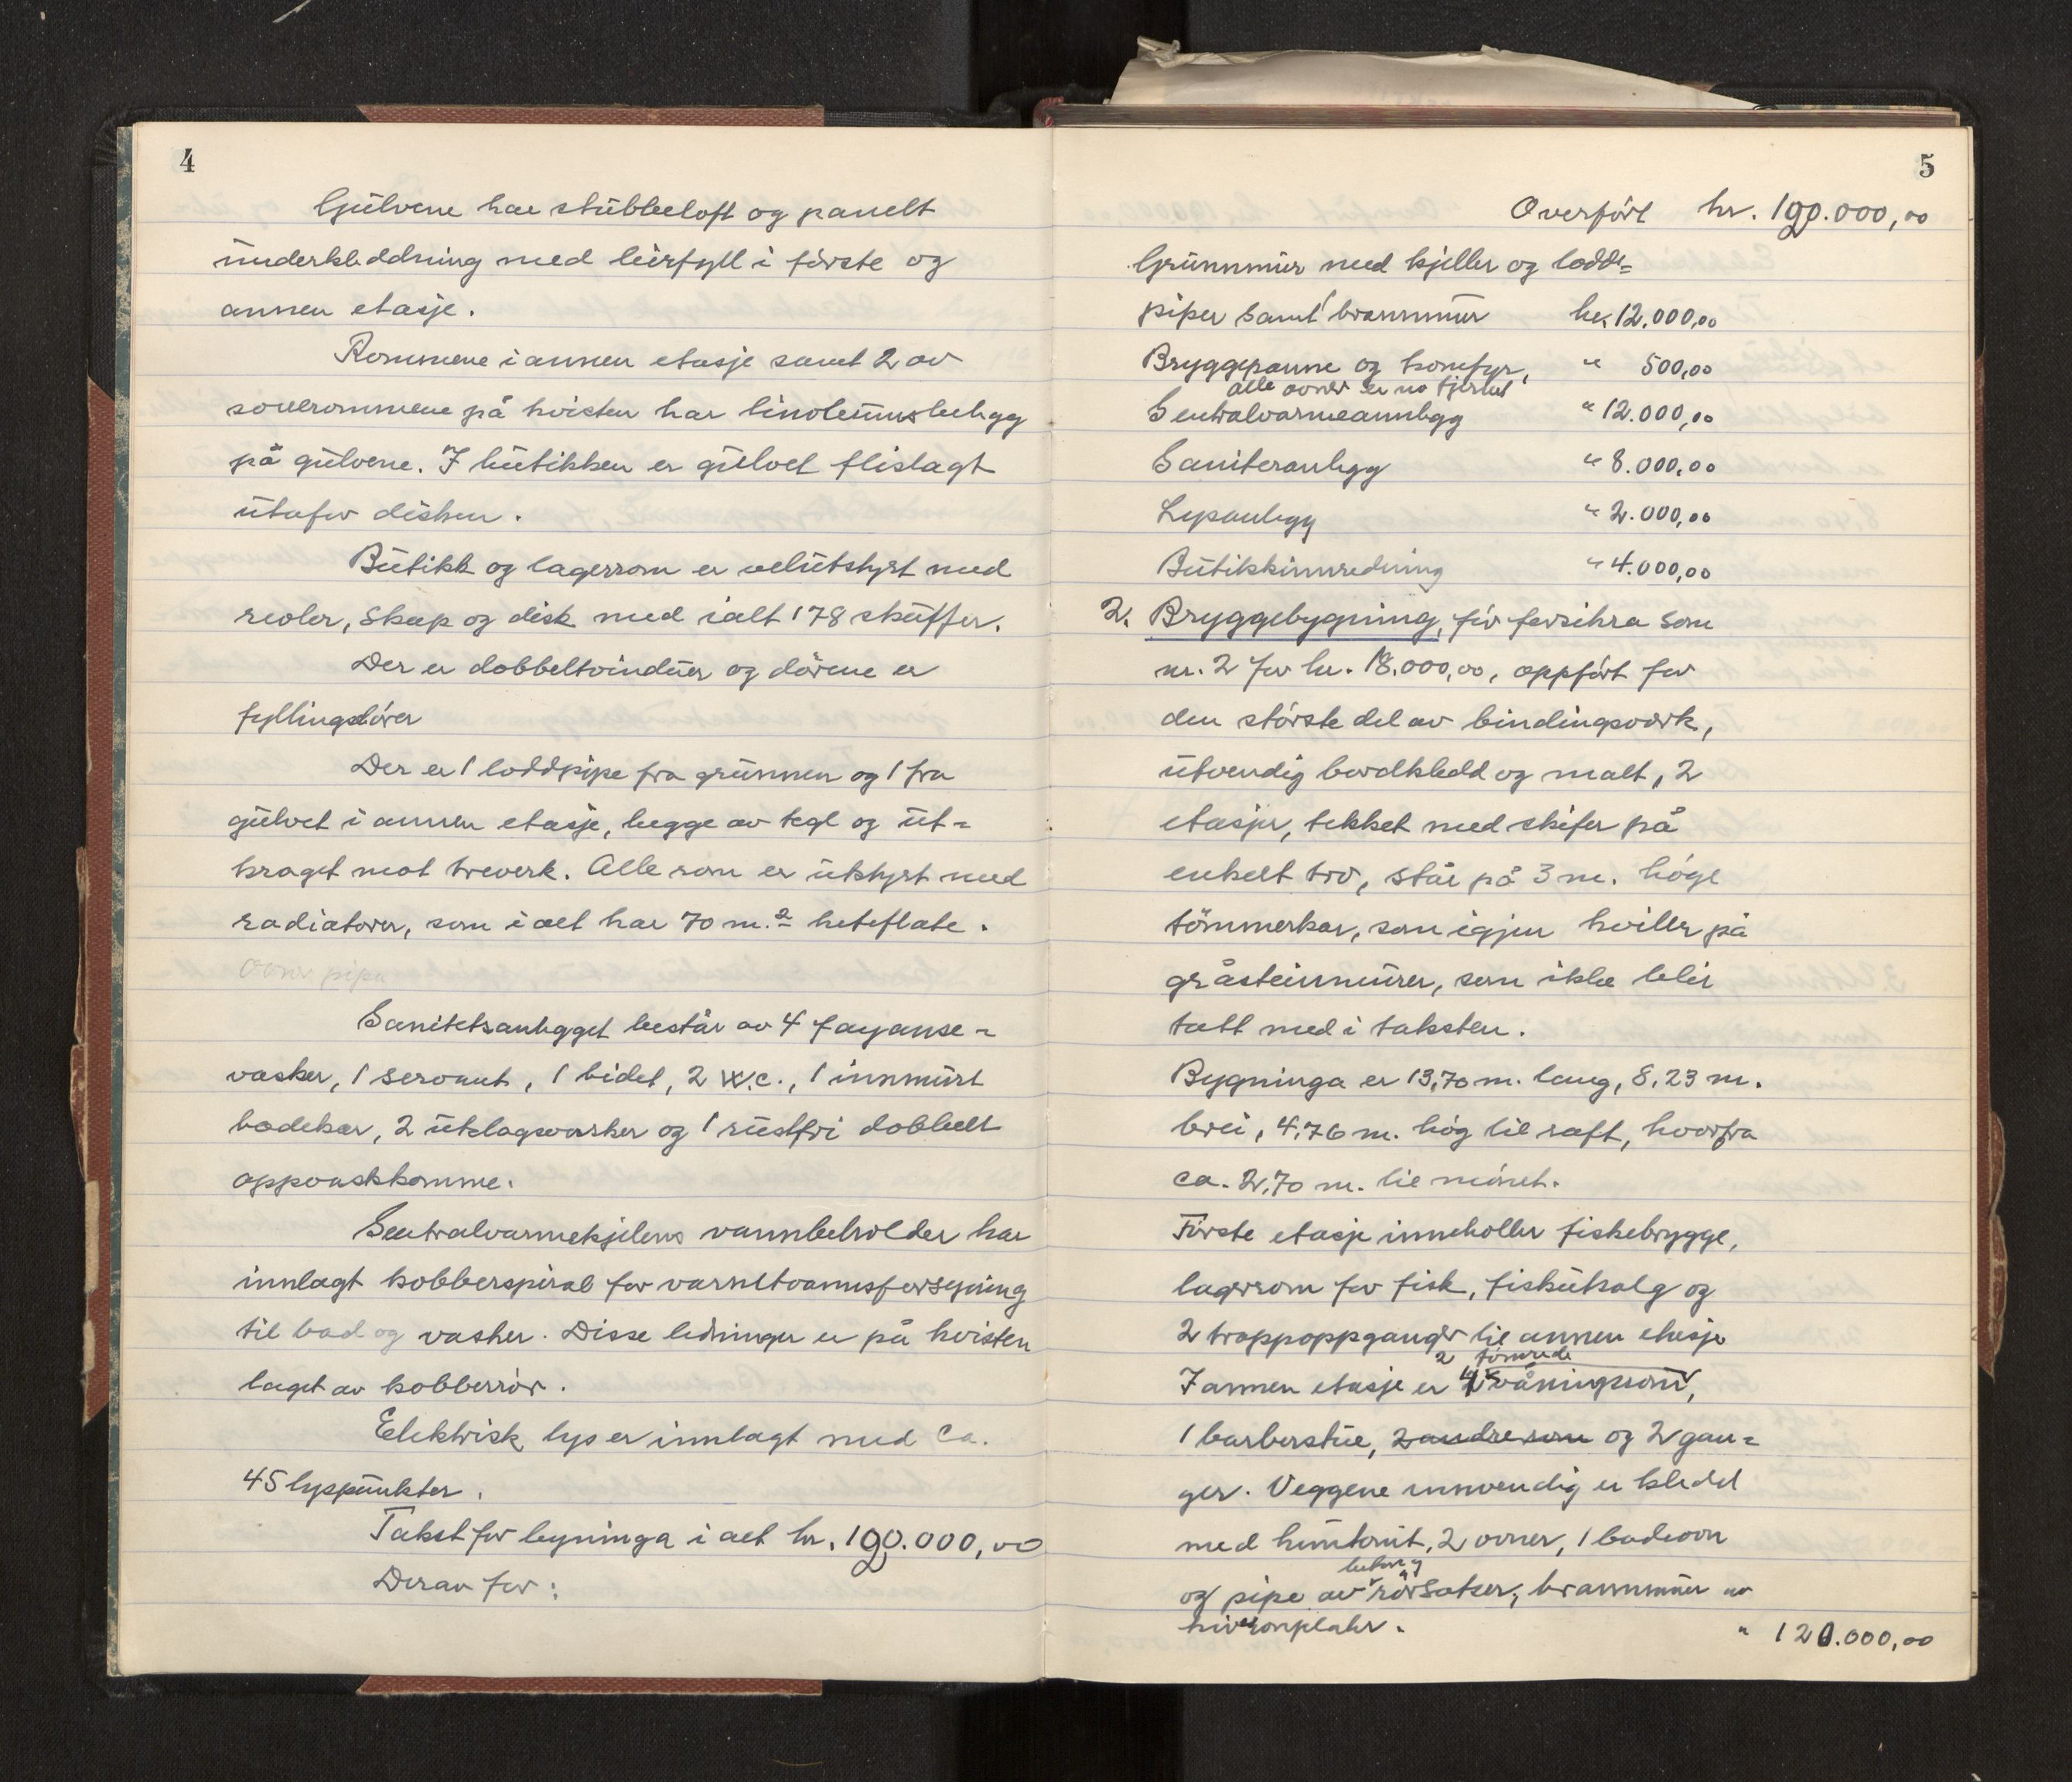 4
Gulvene har stubbeloft og panelt
underkleddning med leirfyll i første og
annen etasje.
Rommene i annen etasje samt 2 av
soverommene på kvisten har linoleumsbelegg
på gulvene. I butikken er gulvet flislagt
utafor disken.
Butikk og lagerrom er velutstyrt med
reoler, skap og disk med ialt 178 skuffer.
Der er dobbeltvinduer og dörene er
fyllingsdörer
Der er 1 loddpipe fra grunnen og 1 fra
gulvet i annen etasje, begge av tegl og ut-
kraget mot treverk. Alle rom er utstyrt med
radiatorer, som i alt har 70 m.2 heteflate.
Ovner pipe
Sanitetsanlegget består av 4 fayanse-
vasker, 1 servant, 1 bidet, 2 W.C., 1 innmurt
badekar, 2 utslagsvasker og 1 rustfri dobbelt
oppvaskkomme.
Sentralvarmekjelens vannbeholder har
innlagt kobberspiral for varmtvannsforsyning
til bad og vasker. Disse ledninger er på kvisten
laget av kobberrör.
Elektrisk lys er innlagt med ca.
45 lyspunkter.
Takst for bygninga i alt kr. 190.000,00
Derav for:
5
Overfört kr. 190.000,00
Grunnmur med kjeller og lodd-
piper samt brannmur kr. 12.000,00
Bryggepanne og komfyr, " 500,00
alle ovner er no fjernet
Sentralvarmeanlegg " 12.000,00
Saniteranlegg " 8.000,00
Lysanlegg " 2.000,00
Butikkinnredning " 4.000,00
2. Bryggebygning, för forsikra som
nr. 2 for kr. 18.000,00, oppfört for
den störste del av bindingsverk,
utvendig bordkledd og malt, 2
etasjer, tekket med skifer på
enkelt tro, står på 3 m. höge
tömmerkar, som igjen hviller på
gråsteinmurer, som ikke blir
tatt med i taksten.
Bygninga er 13,70 m. lang, 8,23 m.
brei, 4,76 m. hög til raft, hvorfra
ca. 2,70 m. til mönet.
Förste etasje inneholler fiskebrygge,
lagerrom for fisk, fiskutsalg og
2 trappoppganger til annen etasje
2 tömrede
I annen etasje er 4 våningsrom,
1 barberstue, 2 andre rom og 2 gan-
ger. Veggene innvendig er kledd
med huntonit, 2 ovner, 1 badeovn
og pipe av rörsatser, brannmur av
" 120.000,00